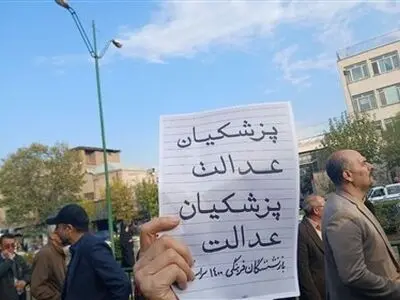 پزشکیان
عدالت
پزشکیان
عدالت
بازنشستگان فرهنگی ۱۴۰۰ سراسر